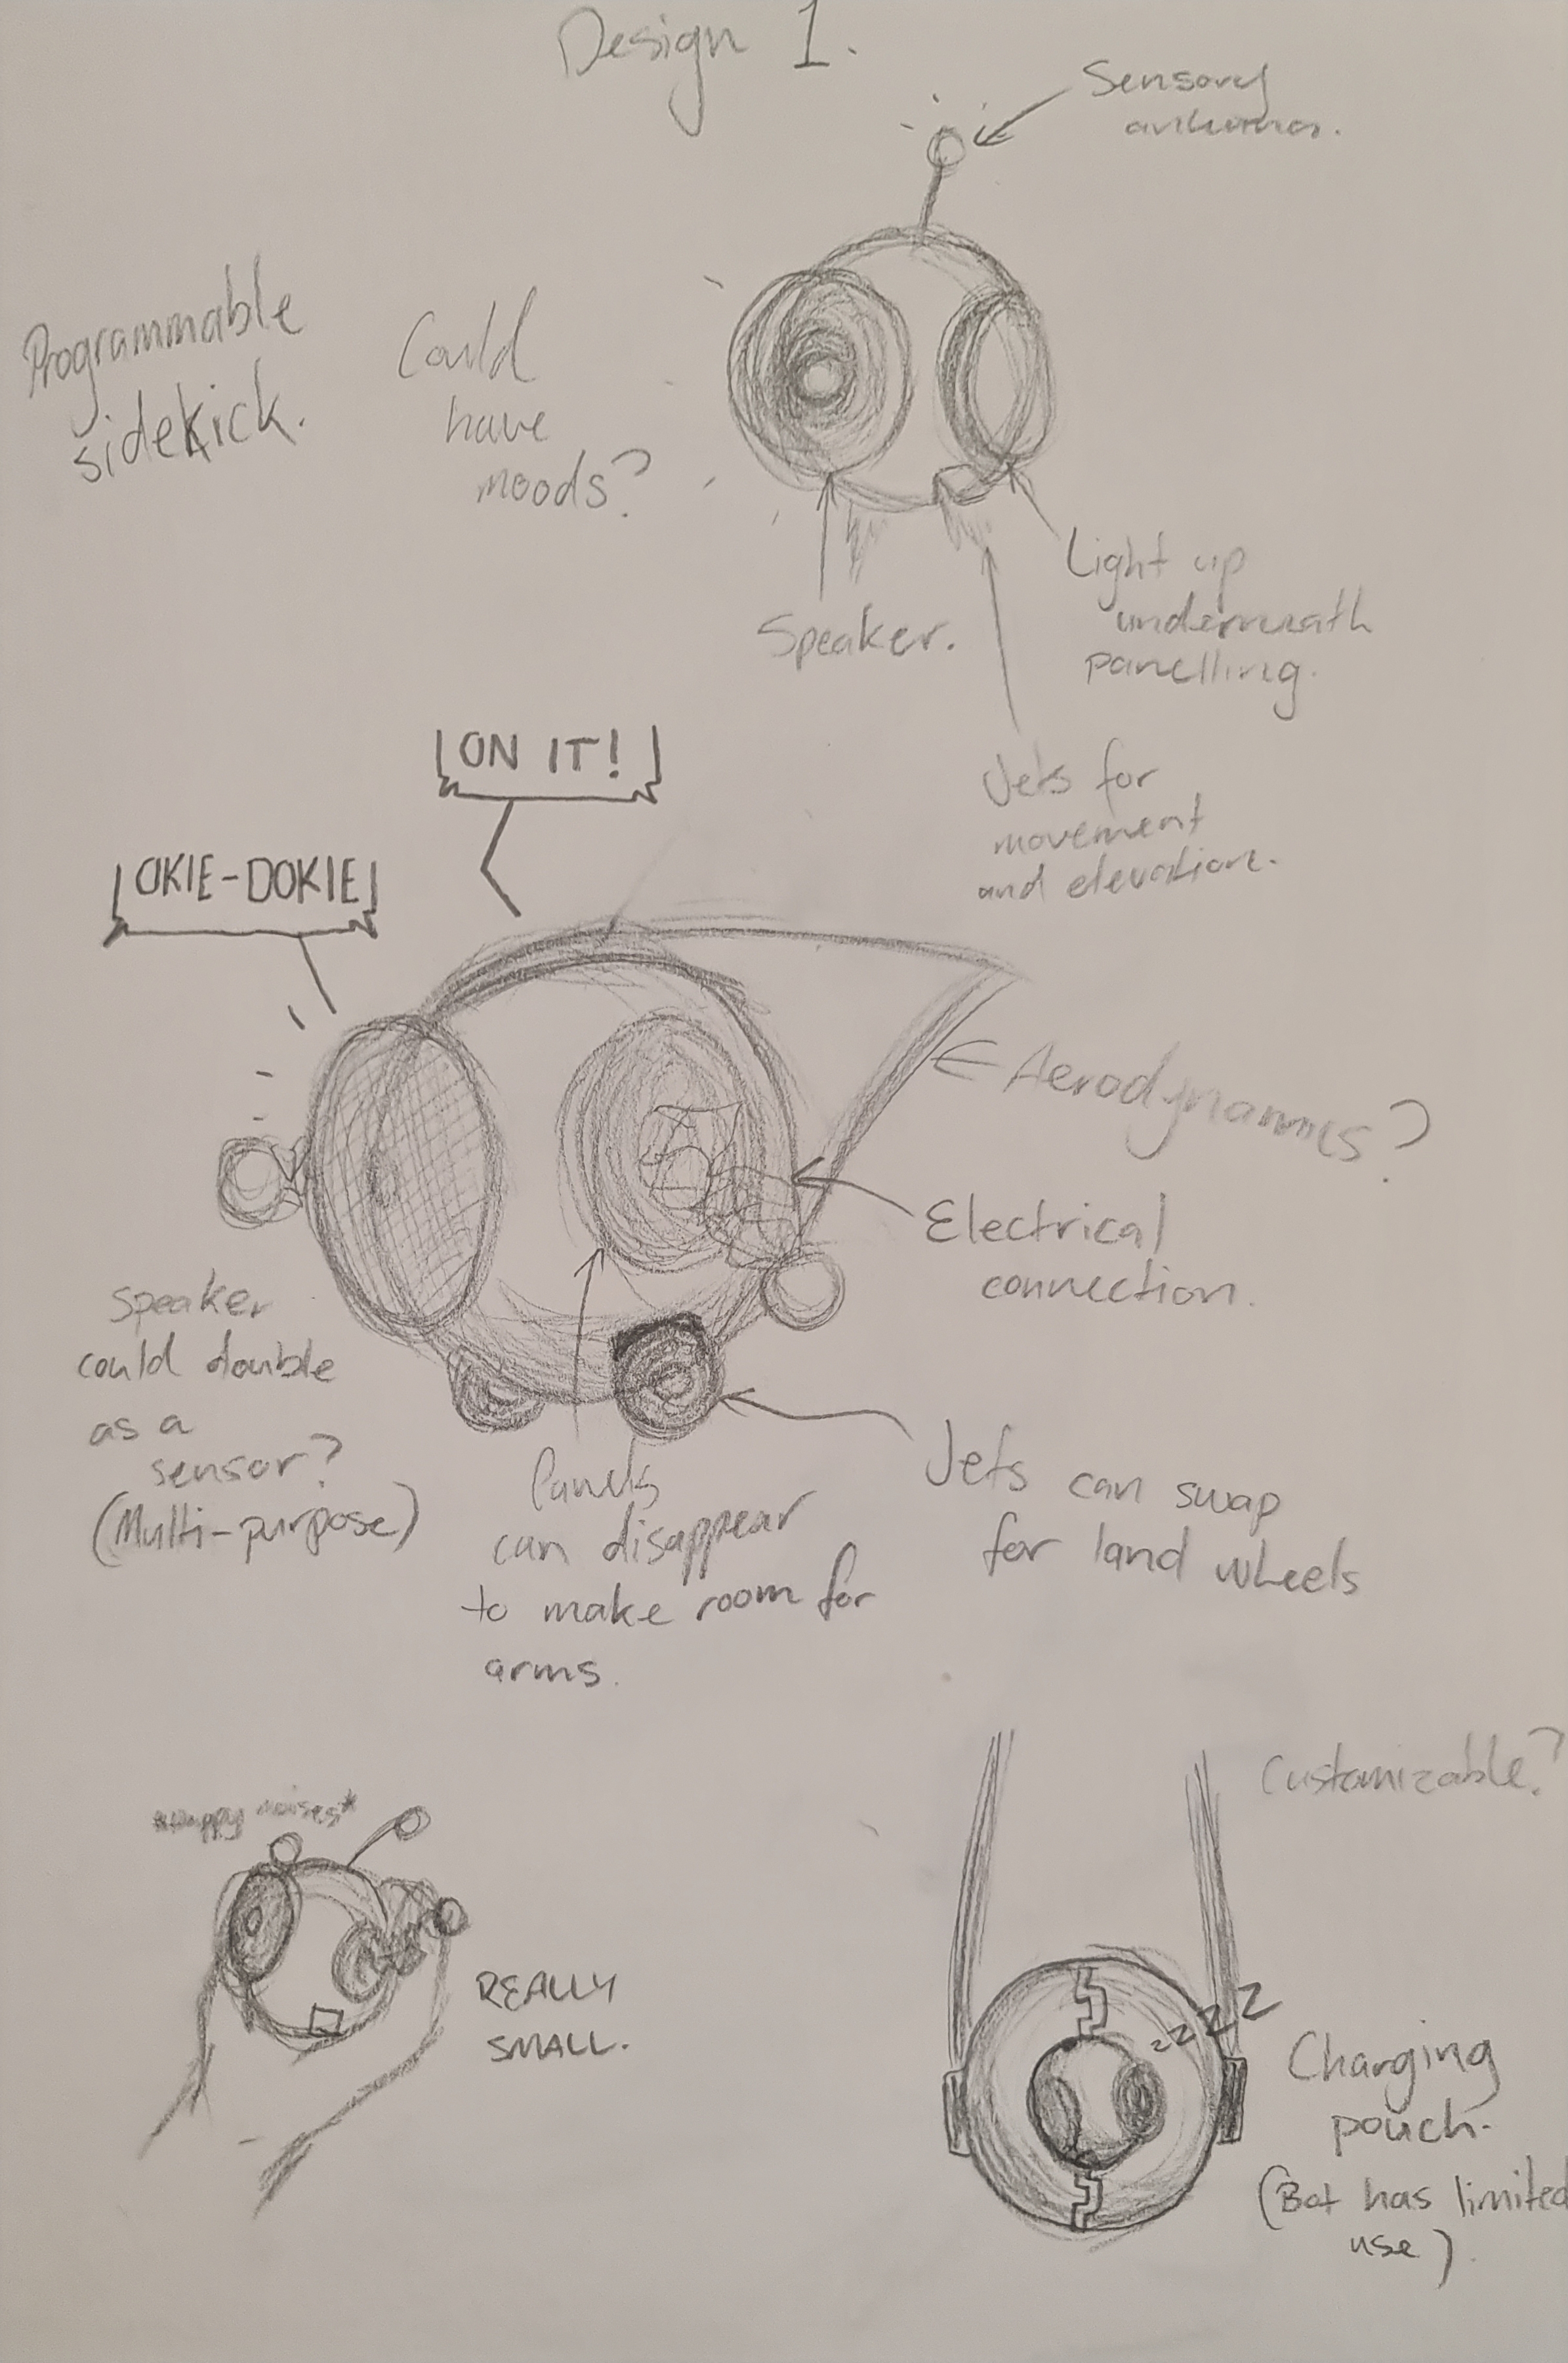 Design 1.
Sensory
antenna.
Programmable
sidekick.
Could
have
moods?
Light up
underneath
panelling.
Speaker.
Jets for
movement
and elevation.
ON IT!
OKIE-DOKIE
Aerodynamics?
Electrical
connection.
Speaker
could double
as a
sensor?
(Multi-purpose)
Panels
can disappear
to make room for
arms.
Jets can swap
for land wheels
Customizable?
*Happy noises*
REALLY
SMALL.
zzzz
Charging
pouch.
(Bot has limited
use)